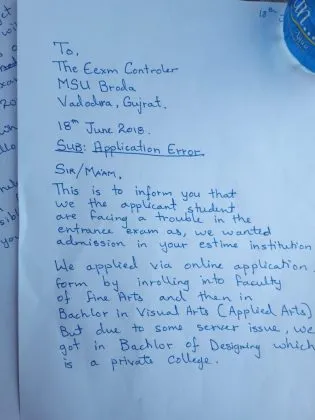 18th
To,
The Eexm Controler
MSU Broda
Vadodra, Gujrat.
18th June 2018.
SUB: Application Error
SIR/MAAM,
This is to inform you that
we the applicant student
are facing a trouble in the
entrance exam as, we wanted
admission in your estime institution
We applied via online application
form by inrolling into Faculty
of Fine Arts and then in
Bachlor in Visual Arts (Applied Arts)
But due to some server issue, we
got in Bachlor of Designing which
is a private college.